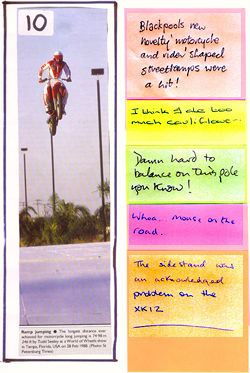 10
Ramp jumping ● The longest distance ever
achieved for motorcycle long jumping is 74·98 m
246 ft by Todd Seeley at a World of Wheels show
in Tampa, Florida, USA on 28 Feb 1988. (Photo: St
Petersburg Times)
Blackpools new
'novelty' motorcycle
and rider shaped
streetlamps were
a hit!
I think I ate too
much cauliflower...
Damn hard to
balance on this pole
you know!
Whoa... mouse on the
road.
The sidestand was
an acknowledged
problem on the
XK12